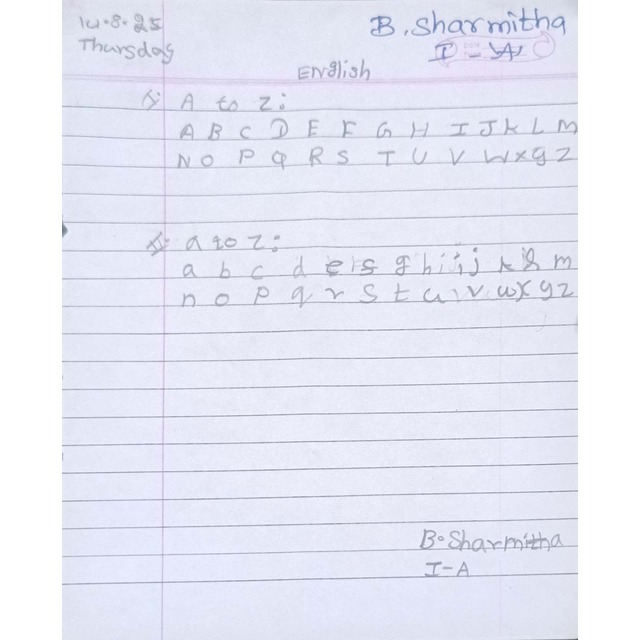 14.8.25
Thursday
B. Sharmitha
I - A
English
A to Z:
A B C D E F G H I J K L M
N O P Q R S T U V W X Y Z
a to z:
a b c d e f g h i j k l m
n o p q r s t u v w x y z
B. Sharmitha
I-A